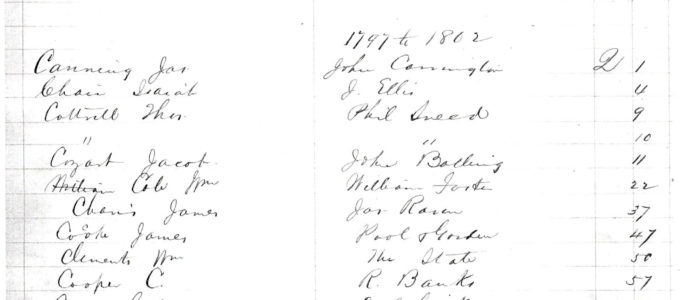 1797 to 1802
Canning Jas John Carrington Q 1
Chair Isaiah J. Ellis 4
Cottrell Thos. Phil Sneed 9
" " 10
Cozart Jacob. John Bolling 11
Cole Wm William Foster 22
James Jas 37
Cooke James Pool & Gordon 47
Clements Wm The State 50
Cooper C. R. Banks 57